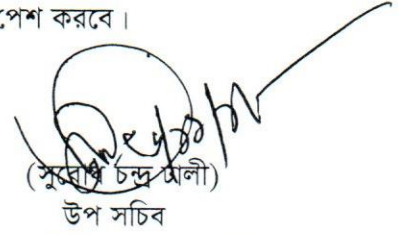 পেশ করবে।
(সুবোধ চন্দ্র ঢালী)
উপ সচিব